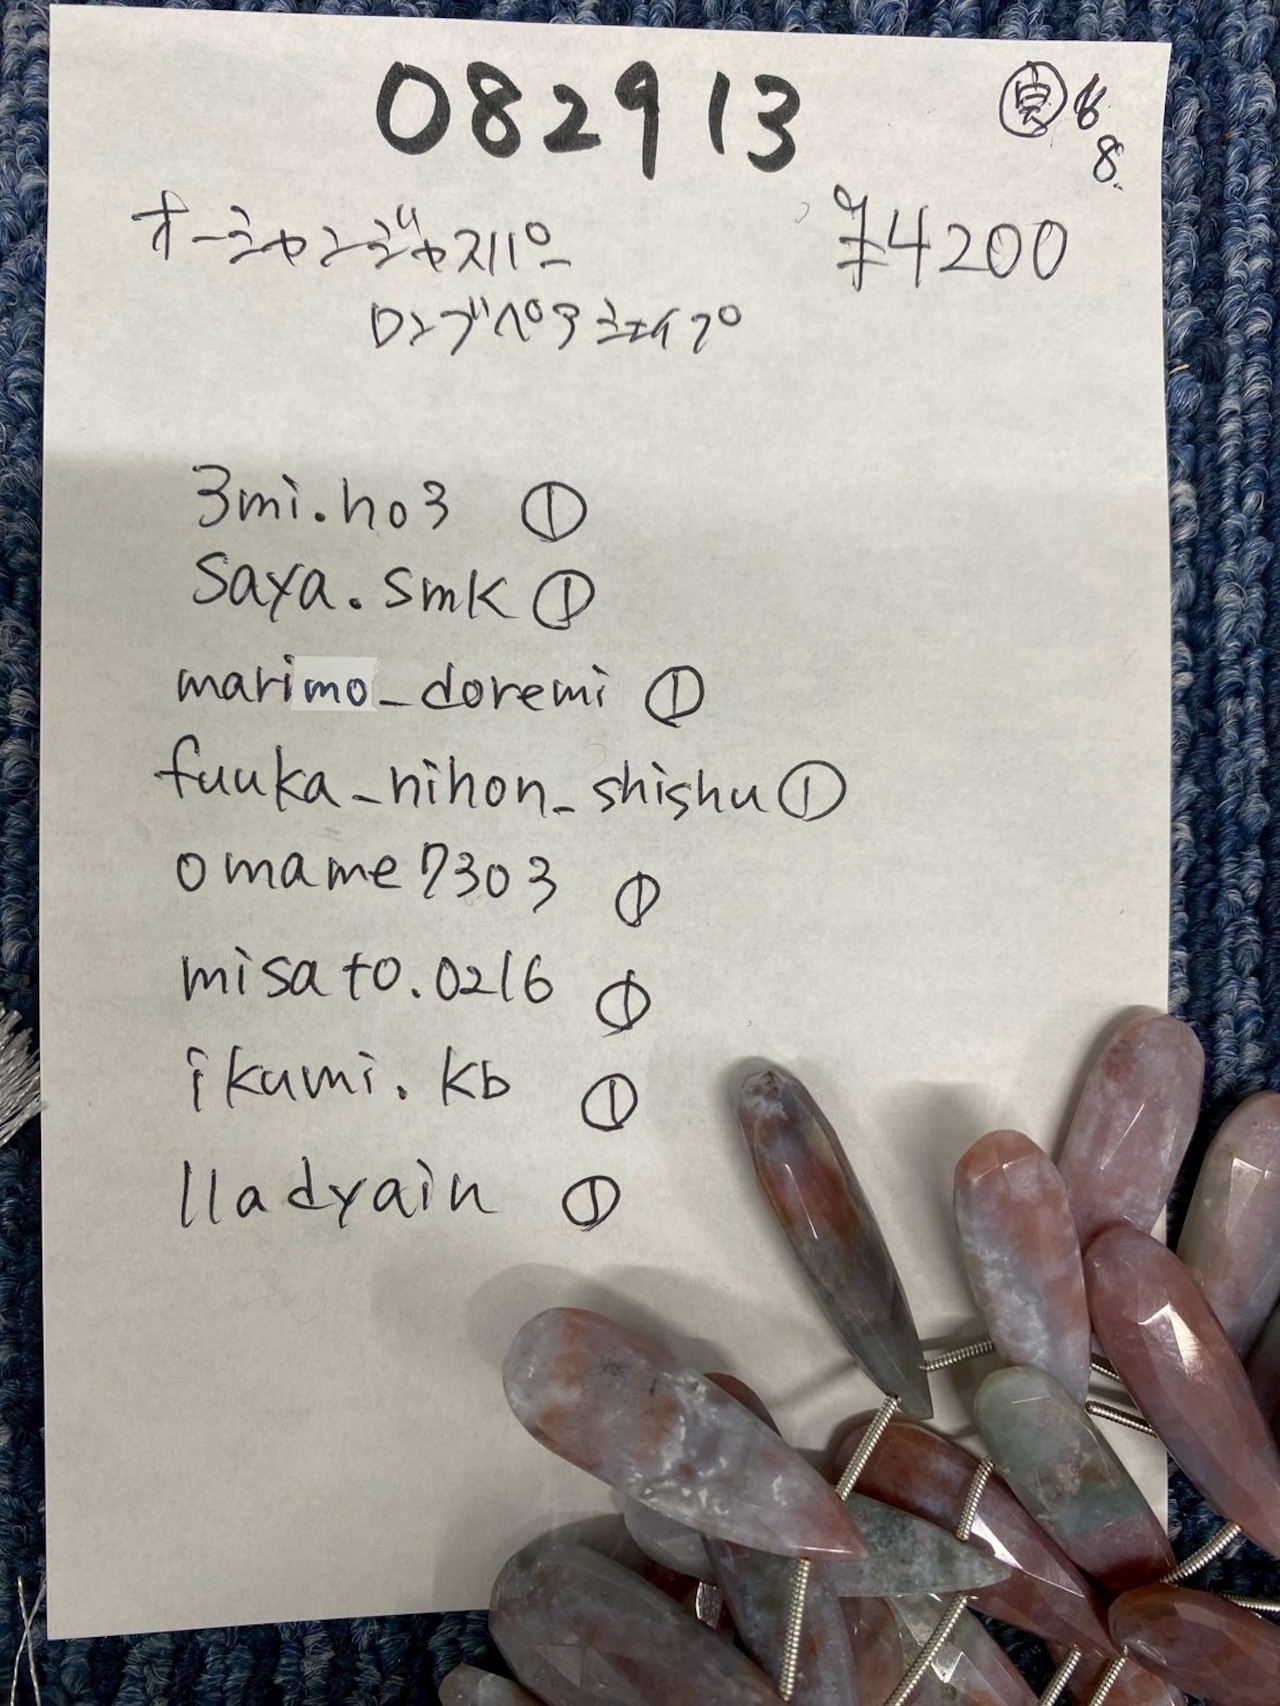 082913
オーシャンジャスパー ¥4200
ロングペアシェイプ
8.
3mi.ho3 ①
saya.smk ①
marimo_doremi ①
fuuka_nihon_shishu ①
omame7303 ①
misato.0216 ①
ikumi.kb ①
lladyain ①